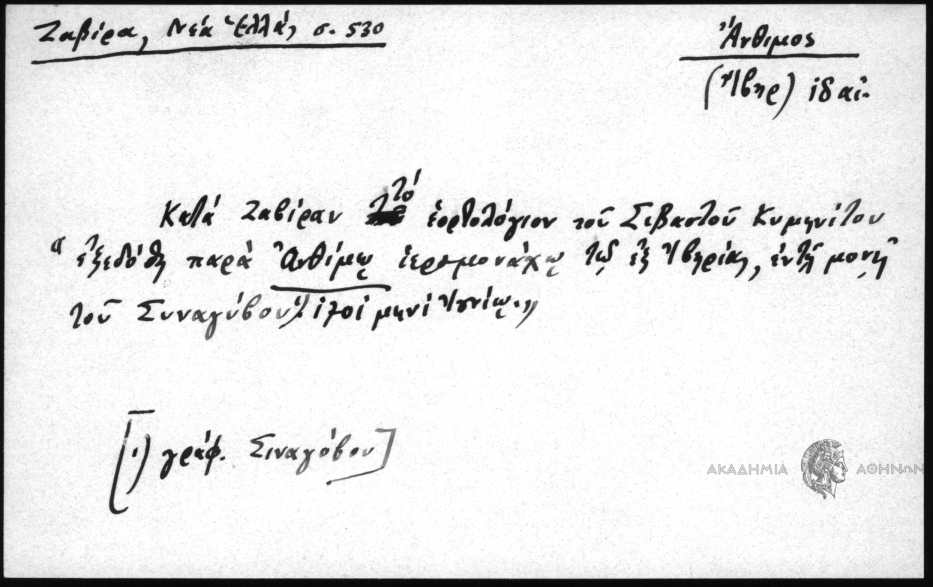 Ζαβίρα, Νέα Ἑλλάς σ. 530
Ἄνθιμος
(Ἴβηρ) ἰδαί.
Κατά Ζαβίραν τό ἑορτολόγιον τοῦ Σεβαστοῦ Κυμηνίτου
"ἐξεδόθη παρά Ἀνθίμῳ ἱερομονάχῳ τῷ ἐξ Ἰβηρίας, ἐν τῇ μονῇ
τοῦ Συναγύβου¹⁾ μηνί Ἰουνίῳ."
[1) γράφ. Σιναγόβου]
ΑΚΑΔΗΜΙΑ ΑΘΗΝΩΝ